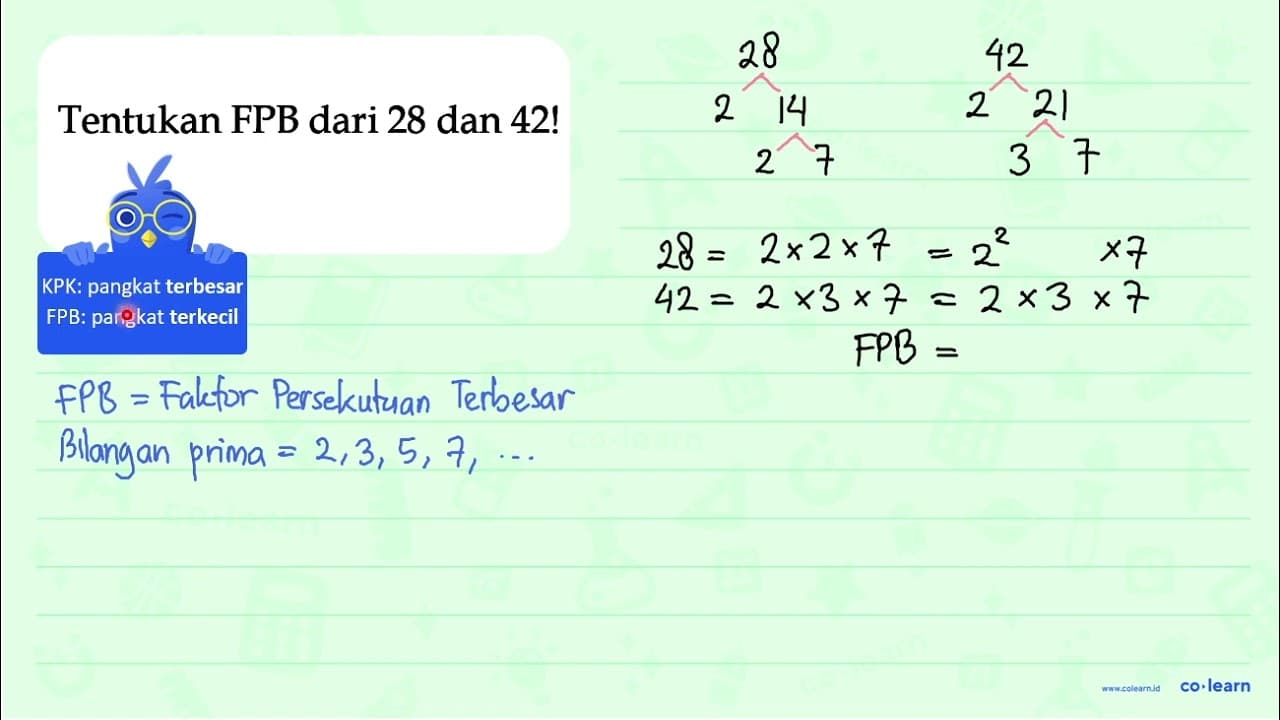 Tentukan FPB dari 28 dan 42!
KPK: pangkat terbesar
FPB: pangkat terkecil
FPB = Faktor Persekutuan Terbesar
Bilangan prima = 2, 3, 5, 7, ...
28
2 14
2 7
42
2 21
3 7
28 = 2 × 2 × 7 = 2² × 7
42 = 2 × 3 × 7 = 2 × 3 × 7
FPB =
www.colearn.id co·learn